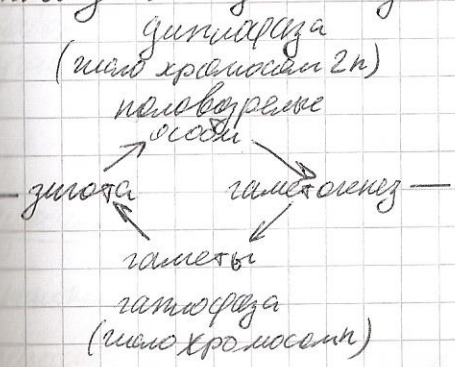 диплофаза
(число хромосом 2n)
половозрелые
особи
зигота гаметогенез
гаметы
гаплофаза
(число хромосом n)